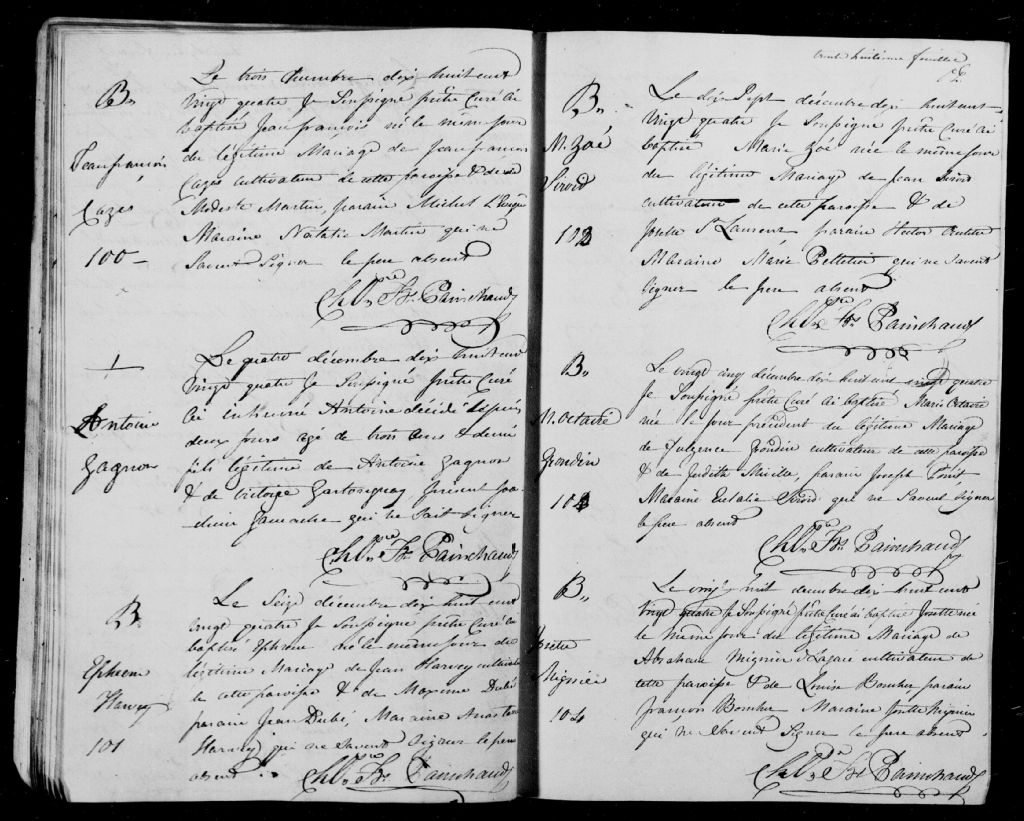 B.
Jean françois
Cazes
100 –
Le trois decembre dix huit cent
vingt quatre Je Soussigné prêtre Curé ai
baptisé Jean françois né le même jour
du légitime Mariage de Jean françois
Cazes cultivateur de cette paroisse & de
Modeste Martin, parain Michel
Maraine Natalie Martin qui ne
Savent Signer le pere absent
Chs Frs Painchaud Ptre
Antoine
Gagnon
Le quatre décembre dix huit cent
vingt quatre Je Soussigné prêtre Curé
ai inhumé Antoine décédé depuis
deux jours agé de trois ans & demi
fils légitime de Antoine Gagnon
& de victoire present
Gamache qui ne Sait Signer
Chs Frs Painchaud Ptre
B.
Ephrem
Harvey
101
Le Seize décembre dix huit cent
vingt quatre Je Soussigné prêtre Curé ai
baptisé Ephrem né le même jour du
légitime Mariage de Jean Harvey cultivateur
de cette paroisse & de Maxime Dubé
parain Jean Dubé, Maraine Anastasie
Harvey qui ne Savent Signer le pere
absent
Chs Frs Painchaud Ptre
trente huitieme feuillet
B.
M. Zoé
Sirois
102
Le dix Sept décembre dix huit cent
vingt quatre Je Soussigné prêtre Curé ai
baptisé Marie Zoé née le même jour
du légitime Mariage de Jean Sirois
cultivateur de cette paroisse & de
Josette St Laurent parain Hector
Maraine Marie Pelletier qui ne Savent
Signer le pere absent
Chs Frs Painchaud Ptre
B.
M. Octavie
Grondin
103
Le vingt cinq décembre dix huit cent vingt quatre
Je Soussigné prêtre Curé ai baptisé Marie Octavie
née le jour précédent du légitime Mariage
de Fulgence Grondin cultivateur de cette paroisse
& de Judith Miville, parain Joseph
Maraine Eulalie Sirois qui ne Savent Signer
le pere absent
Chs Frs Painchaud Ptre
B.
Josette
Mignier
104
Le vingt huit decembre dix huit cent
vingt quatre Je Soussigné prêtre Curé ai baptisé Josette née
le même jour du légitime Mariage de
Abraham Mignier d Lagacé cultivateur de
cette paroisse & de Louise Boucher parain
françois Boucher Maraine Josette Mignier
qui ne Savent Signer le pere absent
Chs Frs Painchaud Ptre